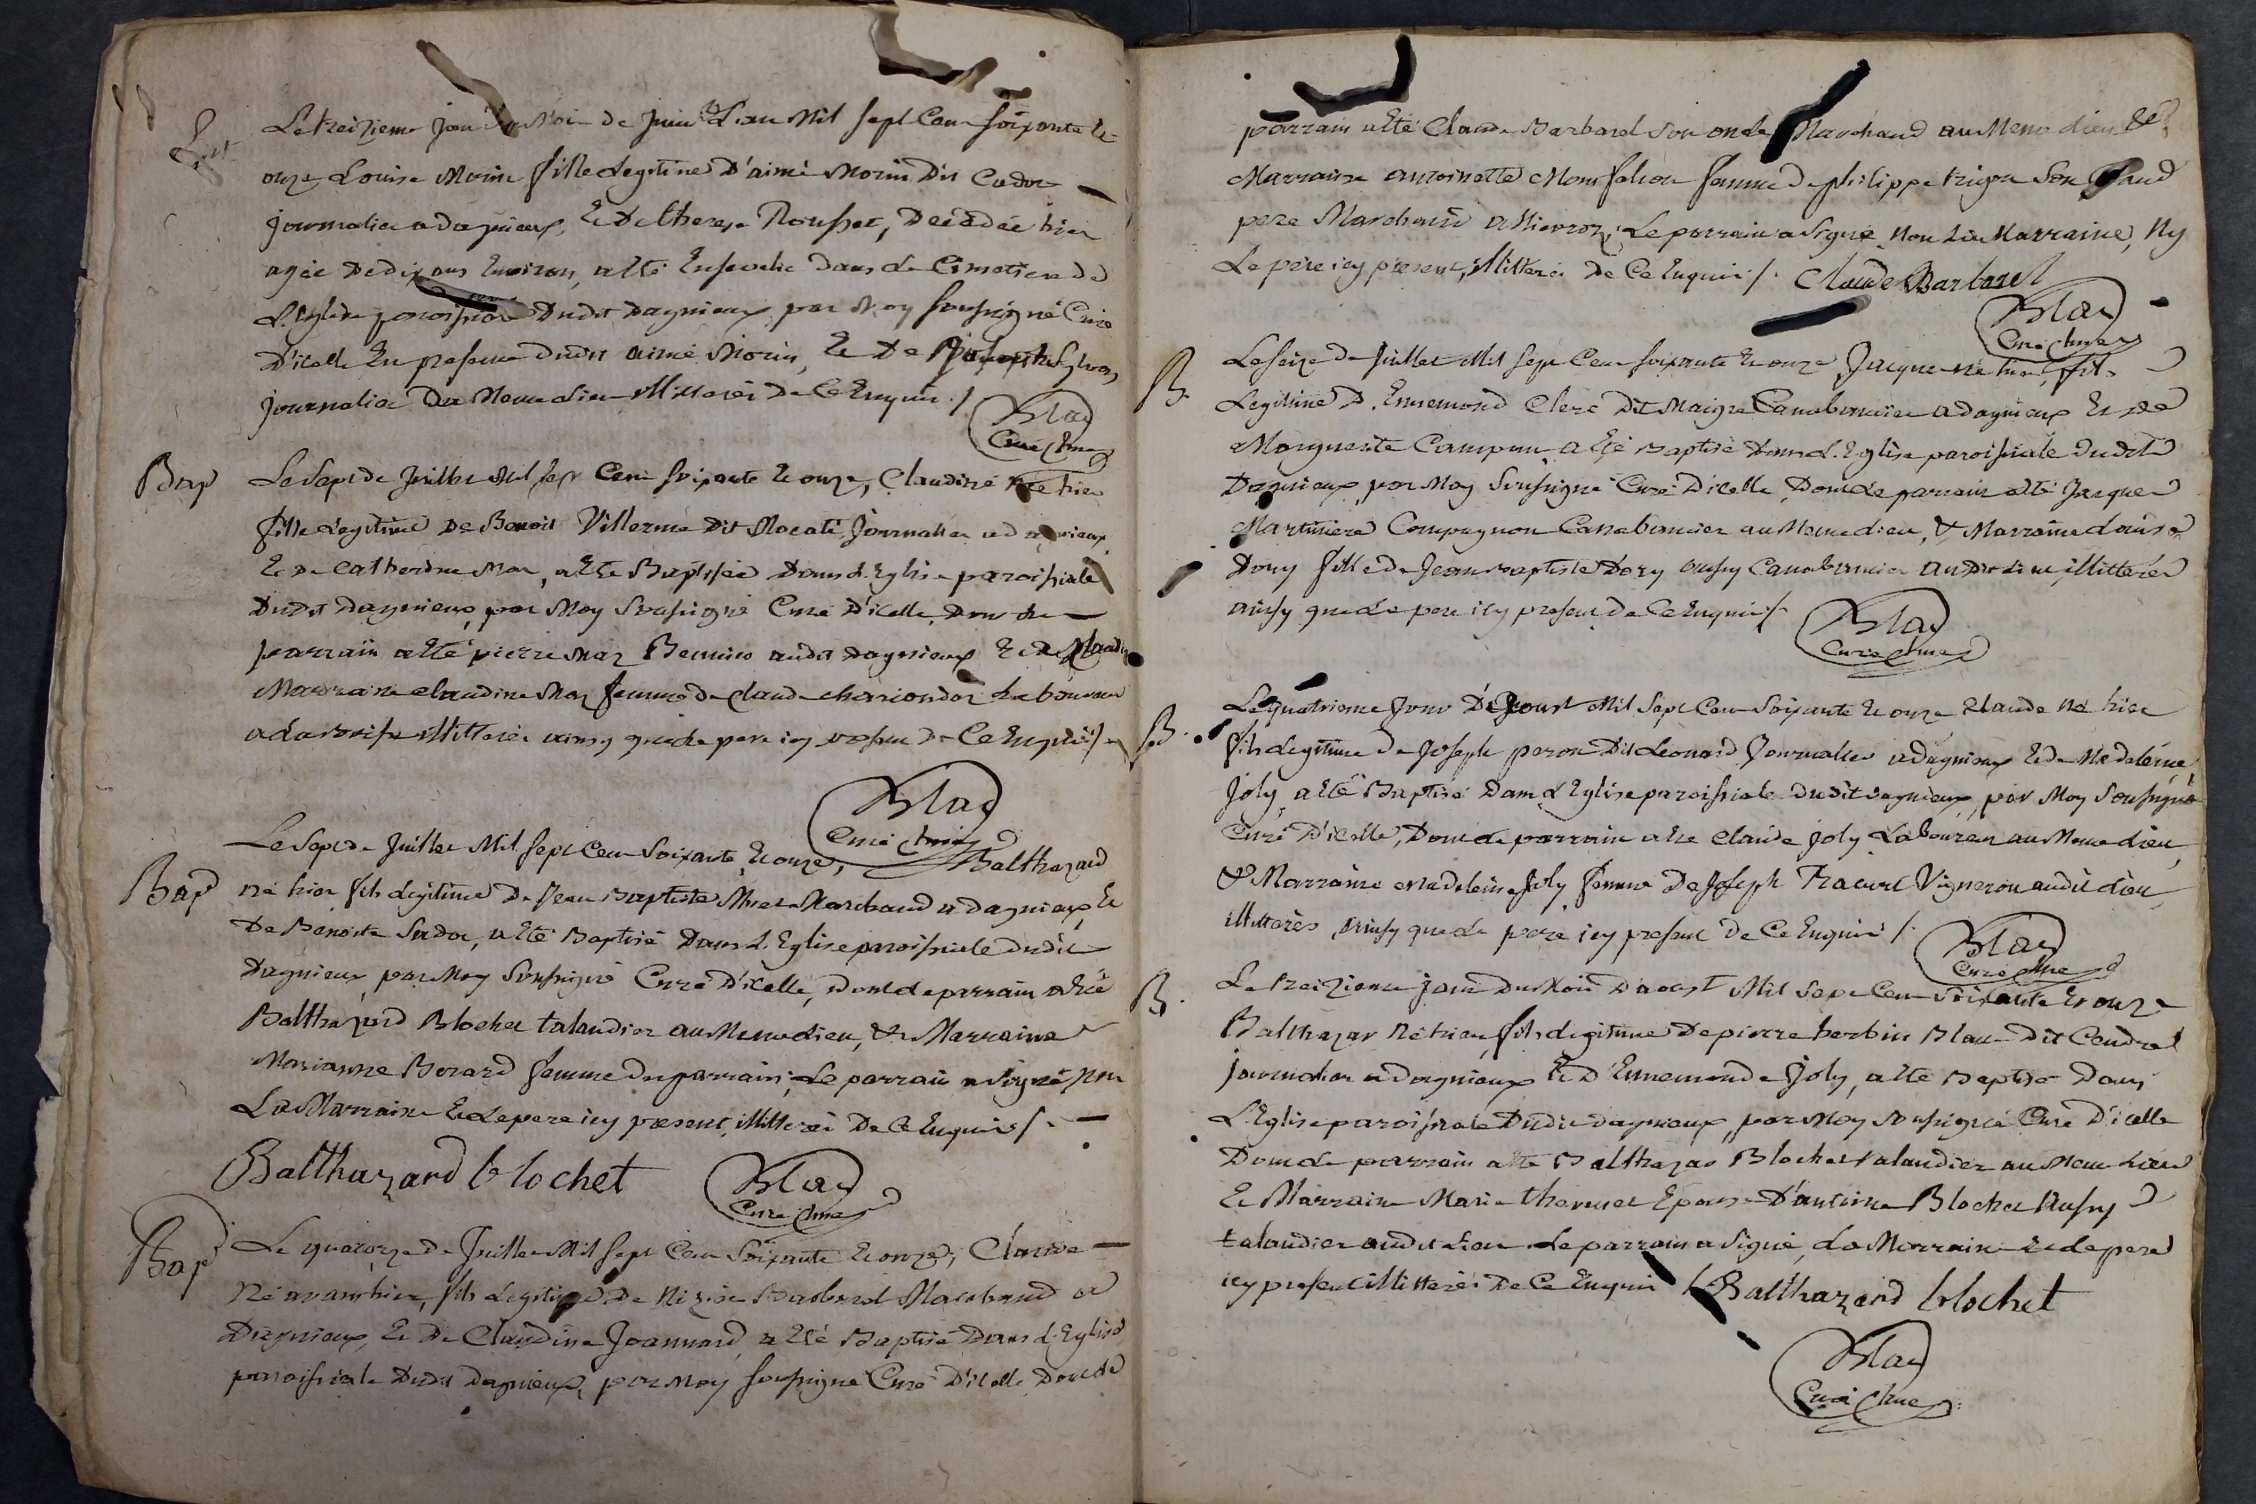 Le treizieme jour du Mois de Juin L'an Mil sept Cent soixante Et
onze Louise Morin fille Legitime D'aimé Morin Dit Cador
journalier a dagnieux, Et De therese Rousset, Decedée hier
agée De dix ans Environ, a Eté Ensevelie Dans Le Cimetiere de
L'Eglise paroissiale Dudit Dagnieux par Moy soussigné Curé
D'icelle En presence dudit aimé Morin, Et De Joseph
journalier Du Meme Lieu illiterés De Ce Enquis ./.
Blad
Curé
Bap Le Sept de Juillet Mil sept Cent soixante Et onze, Claudine née hier
fille Legitime De Benoit Villerme Dit Mocati Journalier a dagnieux
Et De Catherine Mar, a Eté Baptisée Dans L'Eglise paroissiale
Dudit Dagnieux, par Moy Soussigné Curé D'icelle, Dont Le
parrain a Eté pierre Mar audit Dagnieux Et
Marraine Claudine Mar femme de Claude Laboureur
a illiterés ainsy que Le pere icy present De Ce Enquis ./.
Blad
Curé
Le Sept de Juillet Mil sept Cent Soixante Et onze, Balthazard
Bap né hier fils Legitime De Jean Baptiste Marchand a Dagnieux, Et
De Benoite a Eté Baptisé Dans L'Eglise paroissiale Dudit
Dagnieux par Moy Soussigné Curé D'icelle, Dont Le parrain a Eté
Balthazard Blochet talandier au Meme Lieu, & Marraine
Marianne Berard femme du parrain, Le parrain a Signé non
La Marraine Et Le pere icy present, illiterés De Ce Enquis ./.
Balthazard blochet
Blad
Curé
Bap Le quatorze De Juillet Mil sept Cent Soixante Et onze, Claude
Né avant hier, fils Legitime De Nizier Barbarel Marchand a
Dagnieux, Et De Claudine Joannard, a Eté Baptisé Dans L'Eglise
paroissiale Dudit Dagnieux, par Moy soussigné Curé D'icelle Dont Le
parrain a Eté Claude Barbarel Son oncle Marchand au Meme Lieu Et
Marraine antoinette femme De philippe Son Grand
pere Marchand a Le parrain a Signé, Non La Marraine, Ny
Le pere icy present, illiterés De Ce Enquis ./. Claude Barbarel
Blad
Curé
B. Le Seize De Juillet Mil sept Cent soixante Et onze Jacque né hier, fils
Legitime D'Ennemond Clerc Dit Maigre Canabassier a Dagnieux Et De
Marguerite a Eté Baptisé Dans L'Eglise paroissiale Dudit
Dagnieux, par Moy Soussigné Curé D'icelle, Dont Le parrain a Eté Jacque
Martiniere Compagnon Canabassier au Meme Lieu, & Marraine Louise
Dory fille de Jean Baptiste Dory aussy Canabassier audit Lieu, illiterés
ainsy que Le pere icy present De Ce Enquis ./.
Blad
Curé
B. Le quatrieme Jour D'aoust Mil Sept Cent Soixante Et onze Claude né hier
fils Legitime De Joseph peron Dit Leonard Journalier a Dagnieux Et De Madelene
Joly, a Eté Baptisé Dans L'Eglise paroissiale Dudit Dagnieux, par Moy Soussigné
Curé D'icelle, Dont Le parrain a Eté Claude Joly Laboureur au Meme Lieu,
& Marraine Madeleine Joly femme De Joseph Vigneron audit Lieu
illiterés, ainsy que Le pere icy present De Ce Enquis ./.
Blad
Curé
B. Le treizieme jour Du Mois D'aoust Mil Sept Cent Soixante Et onze
Balthazar né hier, fils Legitime De pierre herbin Blanc Dit Coudra
journalier a Dagnieux Et D'Ennemonde Joly, a Eté Baptisé Dans
L'Eglise paroissiale Dudit Dagnieux, par Moy Soussigné Curé D'icelle
Dont Le parrain a Eté Balthazar Blochet talandier au Meme Lieu
Et Marraine Marie Epouse D'antoine Blochet Aussy
talandier audit Lieu Le parrain a Signé, La Marraine Et Le pere
icy present illiterés De Ce Enquis ./. Balthazard blochet
Blad
Curé